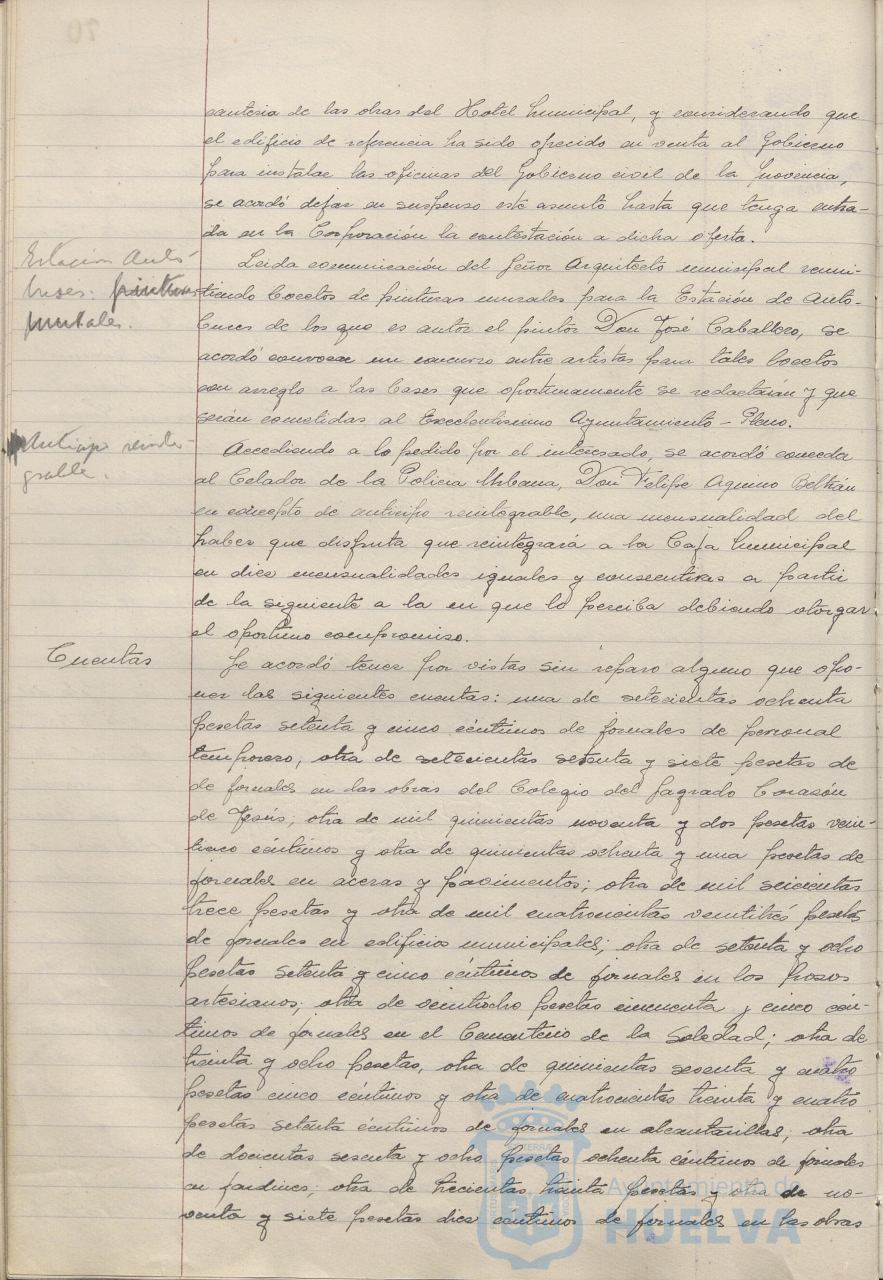 santería de las obras del Hotel Municipal, y considerando que
el edificio de referencia ha sido ofrecido en venta al Gobierno
para instalar las oficinas del Gobierno civil de la Provincia,
se acordó dejar en suspenso este asunto hasta que tenga entra-
da en la Corporación la contestación a dicha oferta.
Estacion Auto-
buses: pinturas
murales.
Leida comunicación del Señor Arquitecto municipal remi-
tiendo bocetos de pinturas murales para la Estación de Auto-
buses de los que es autor el pintor Don José Caballero, se
acordó convocar un concurso entre artistas para tales bocetos
con arreglo a las bases que oportunamente se redactarán y que
serán sometidas al Excelentísimo Ayuntamiento-Pleno.
Anticipo reinte-
grable.
Accediendo a lo pedido por el interesado, se acordó conceder
al Celador de la Policía Urbana, Don Felipe Aquino Beltrán
en concepto de anticipo reintegrable, una mensualidad del
haber que disfruta que reintegrará a la Caja Municipal
en diez mensualidades iguales y consecutivas a partir
de la siguiente a la en que lo perciba debiendo otorgar
el oportuno compromiso.
Cuentas
Se acordó tener por vistas sin reparo alguno que opo-
ner las siguientes cuentas: una de setecientas ochenta
pesetas setenta y cinco céntimos de jornales de personal
temporero; otra de setecientas setenta y siete pesetas de
de jornales en las obras del Colegio del Sagrado Corazón
de Jesús; otra de mil quinientas noventa y dos pesetas vein-
ticinco céntimos y otra de quinientas ochenta y una pesetas de
jornales en aceras y pavimentos; otra de mil seiscientas
trece pesetas y otra de mil cuatrocientas veintitrés pesetas
de jornales en edificios municipales; otra de setenta y ocho
pesetas setenta y cinco céntimos de jornales en los Pozos
artesianos; otra de veintiocho pesetas cincuenta y cinco cén-
timos de jornales en el Cementerio de la Soledad; otra de
treinta y ocho pesetas, otra de quinientas sesenta y cuatro
pesetas cinco céntimos y otra de cuatrocientas treinta y cuatro
pesetas setenta céntimos de jornales en alcantarillas; otra
de docientas sesenta y ocho pesetas ochenta céntimos de jornales
en jardines; otra de trecientas treinta pesetas y otra de no-
venta y siete pesetas diez céntimos de jornales en las obras
Ayuntamiento de
HUELVA